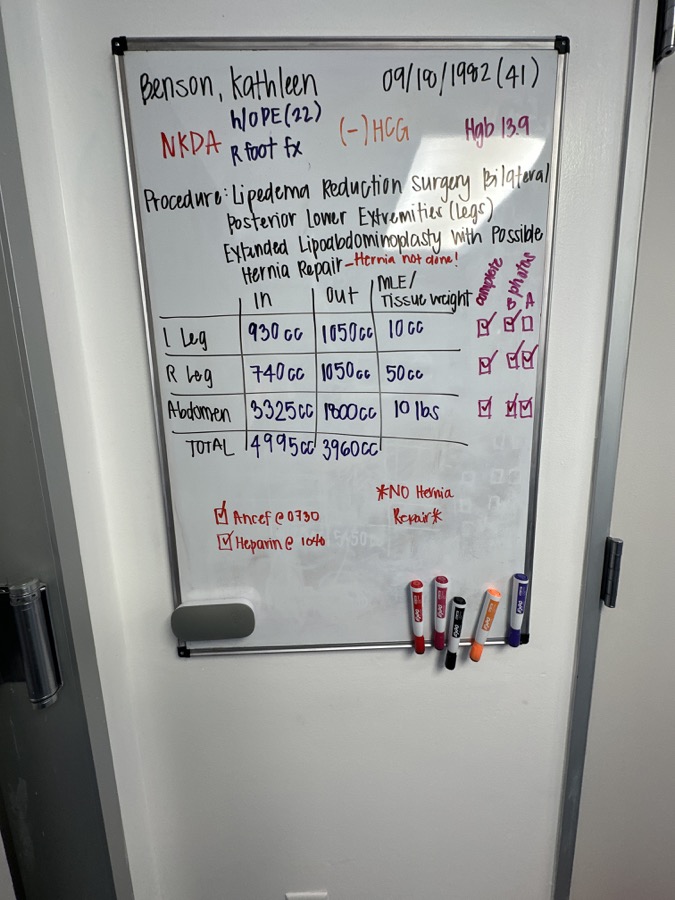 Benson, Kathleen 09/18/1982 (41)
NKDA h/o PE (22) (-) HCG Hgb 13.9
R foot fx
Procedure: Lipedema Reduction Surgery Bilateral
Posterior Lower Extremities (Legs)
Extended Lipoabdominoplasty with Possible
Hernia Repair - Hernia not done!
In Out MLE/ Tissue weight complete B photos A
L Leg 930cc 1050cc 10cc
R Leg 740cc 1050cc 50cc
Abdomen 3325cc 1800cc 10 lbs
TOTAL 4995cc 3960cc
*NO Hernia
Repair*
Ancef @ 0730
Heparin @ 1040